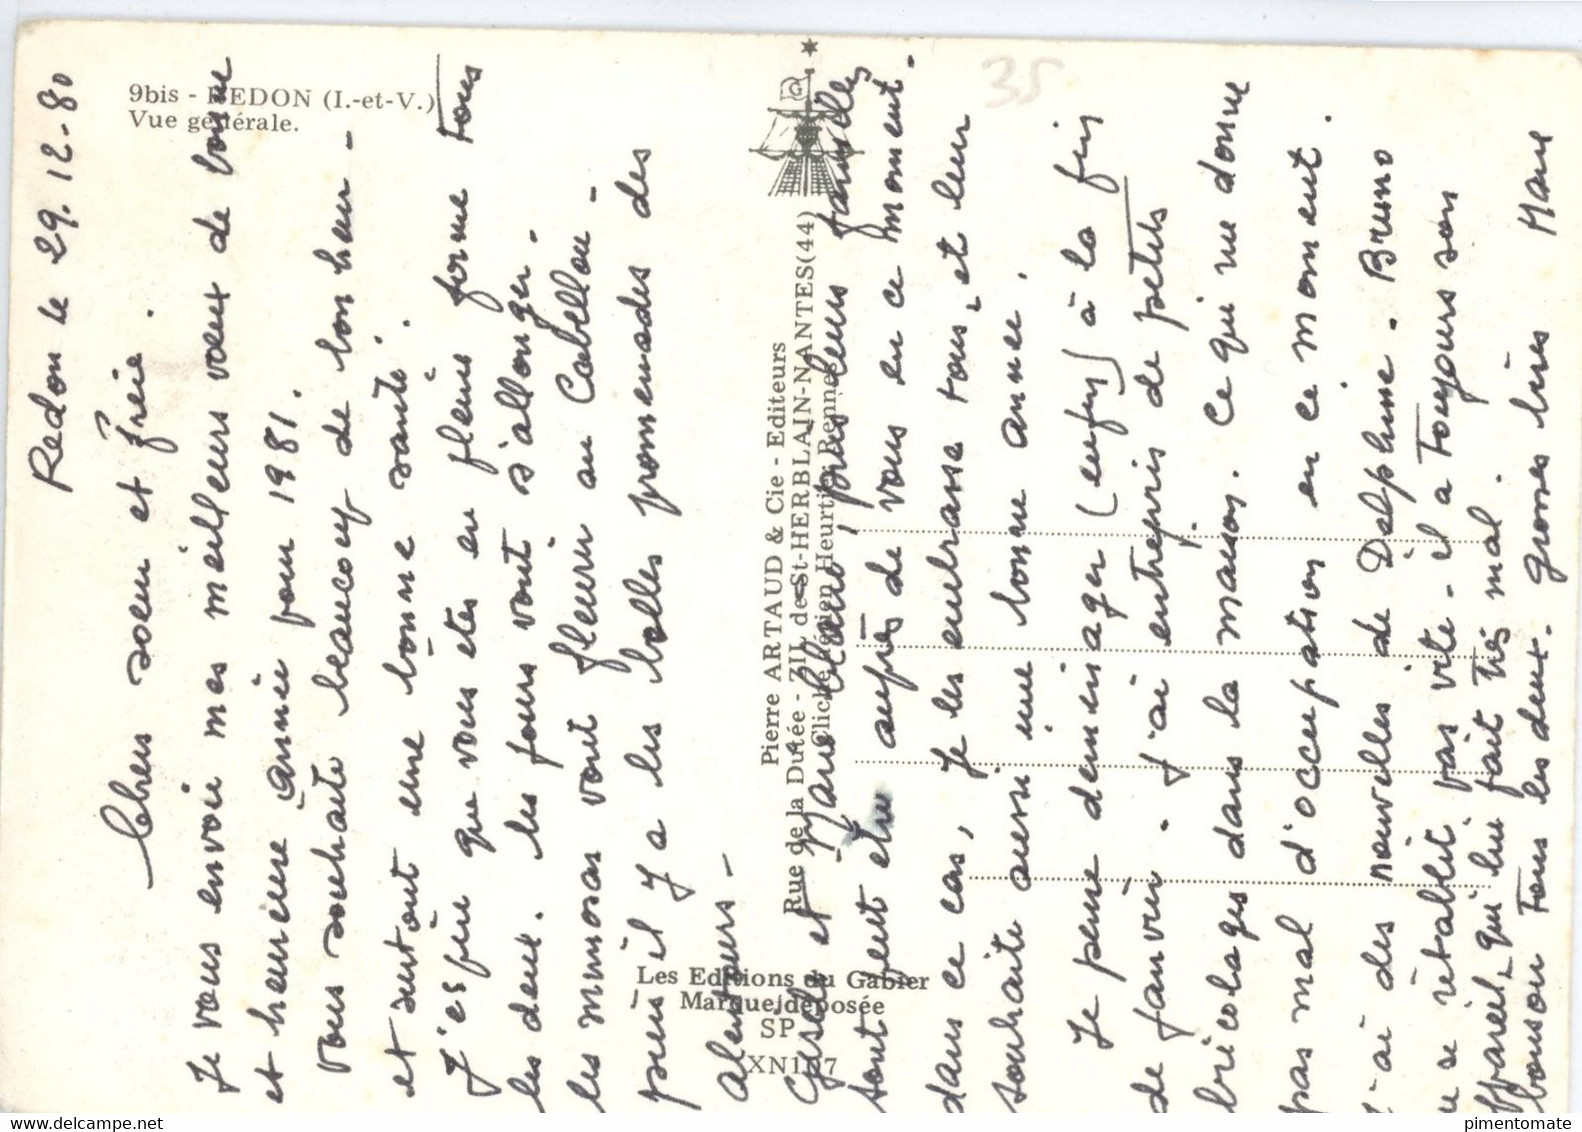 9bis - REDON (I.-et-V.)
Vue générale.
35
Redon le 29.12.80
Chers soeur et frère.
Je vous envoie mes meilleurs vœux de bonne
et heureuse année pour 1981.
Vous souhaite beaucoup de bonheur -
et surtout une bonne santé.
J'espère que vous êtes en pleine forme tous
les deux. les jours vont s'allonger -
les mimosas vont fleurir au Cabellou -
puis il y a les belles promenades des
alentours -
Pierre ARTAUD & Cie - Editeurs
Rue de la Dutée - ZIL de St-HERBLAIN-NANTES (44)
Cliché Région Heurtier Rennes
Les Editions du Gabier
Marque déposée
SP
XN107
et Marie Claude, puis leurs familles
sont peut etre auprès de vous en ce moment -
dans ce cas, je les embrasse tous, et leur
souhaite aussi une bonne année.
Je pense déménager (enfin) à la fin
de janvier. J'ai entrepris de petits
bricolages dans la maison. Ce qui me donne
pas mal d'occupation en ce moment.
J'ai des nouvelles de Delphine. Bruno
se rétablit pas vite - il a toujours son
appareil, qui lui fait très mal.
bonsoir Tous les deux. grosses bises Mane
pimentomate